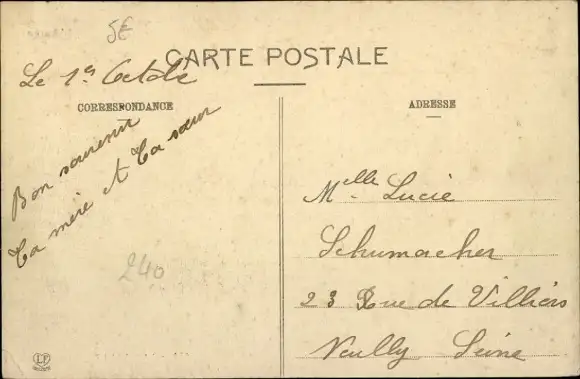 5€
CARTE POSTALE
Le 1er Octobe
CORRESPONDANCE
ADRESSE
Bon souvenir
Ta mère et ta sœur
Melle Lucie
Schumacher
23 Rue de Villiers
Neuilly Seine
240
LF